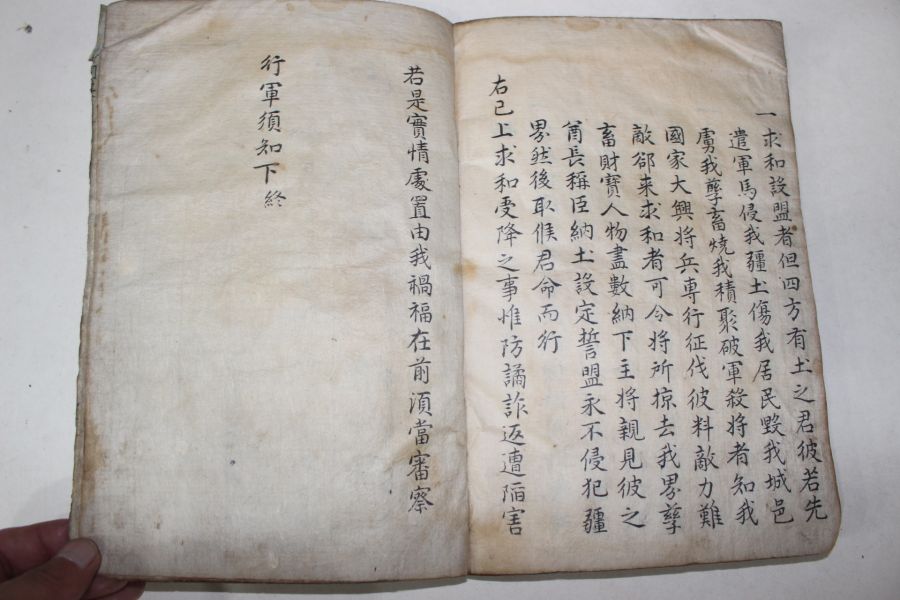 一求和設盟者但四方有土之君彼若先
遣軍馬侵我疆土傷我居民毁我城邑
虜我孳畜燒我積聚破軍殺將者知我
國家大興將兵專行征伐彼料敵力難
敵郤来求和者可令将所掠去我界孳
畜財寶人物盡數納下主将親見彼之
酋長稱臣納土設定誓盟永不侵犯疆
界然後取候君命而行
右已上求和受降之事惟防譎詐返遭陷害
若是實情處置由我禍福在前湏當審察
行軍須知下終